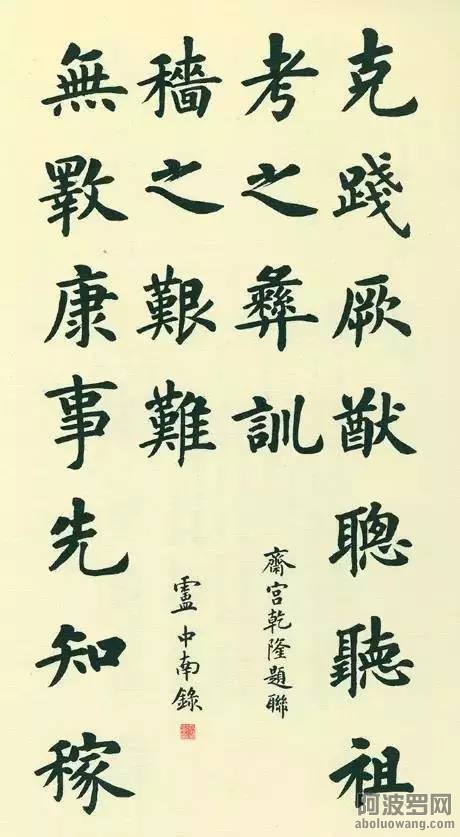 克踐厥猷聰聽祖
考之彝訓
齋宮乾隆題聯
無斁康事先知稼
穡之艱難
盧中南錄
阿波罗网
aboluowang.com